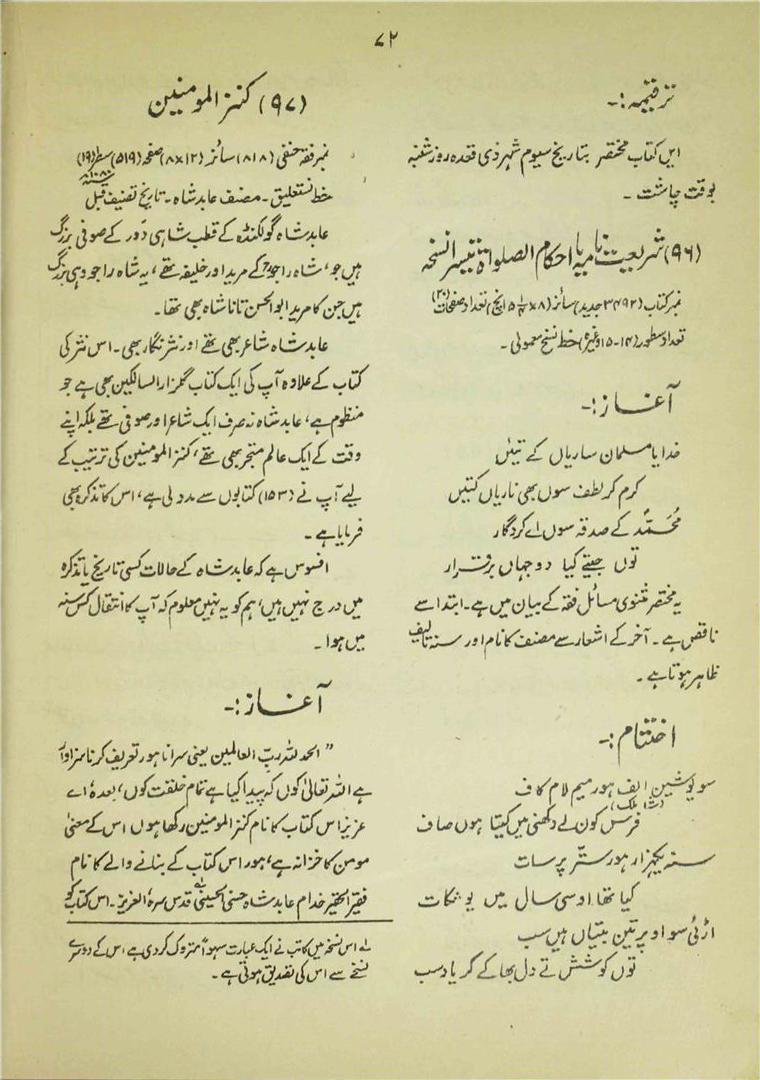 ۷۲
ترقیمہ:۔
ایں کتاب مختصر بتاریخ سیوم شہر ذی قعدہ روز شنبہ
بوقت چاشت ۔
(۹۶) شریعت نامہ یا احکام الصلواۃ تیسرا نسخہ
نمبر کتاب (۳۴۹۲ جدید) سائز (۸×۵½ انچ) تعداد صفحات (۲۰)
تعداد سطور (۱۴-۱۵ وغیرہ) خط نسخ معمولی ۔
آغاز:۔
خدایا مسلمان ساریاں کے تیئں
کرم کر لطف سوں بھی ناریاں کتیں
محمدؐ کے صدقہ سوں اے کردگار
توں جیتے کیا دو جہاں برقرار
یہ مختصر مثنوی مسائل فقہ کے بیان میں ہے۔ ابتدا سے
ناقص ہے۔ آخر کے اشعار سے مصنف کا نام اور سنہ تالیف
ظاہر ہوتا ہے ۔
اختتام:۔
سو یو شین الف ہور میم لام کاف
(شاہ ملک)
فرس کوں لے دکھنی میں کیتا ہوں صاف
سنہ یکہزار ہور ستّر پر سات
کیا تھا اوسی سال میں یو نکات
اڑئی سو اوپر تین بیتیاں ہیں سب
توں کوشش تے دل بھا کے کر یاد سب
(۹۷) کنز المومنین
نمبر فقہ حنفی (۸۱۸) سائز (۱۲×۸) صفحہ (۵۱۹) سطر (۱۹)
خط نستعلیق۔ مصنف عابد شاہ۔ تاریخ تصنیف قبل
عابد شاہ گولکنڈہ کے قطب شاہی دَور کے صوفی بزرگ
ہیں جو، شاہ راجو کے مرید اور خلیفہ تھے، یہ شاہ راجو وہی بزرگ
ہیں جن کا مرید ابوالحسن تانا شاہ بھی تھا۔
عابد شاہ شاعر بھی تھے اور نثر نگار بھی۔ اس نثر کی
کتاب کے علاوہ آپ کی ایک کتاب گلزار السالکین بھی ہے جو
منظوم ہے، عابد شاہ نہ صرف ایک شاعر اور صوفی تھے بلکہ اپنے
وقت کے ایک عالم متبحر بھی تھے، کنز المومنین کی ترتیب کے
لیے آپ نے (۱۵۳) کتابوں سے مدد لی ہے، اس کا تذکرہ بھی
فرمایا ہے ۔
افسوس ہے کہ عابد شاہ کے حالات کسی تاریخ یا تذکرہ
میں درج نہیں ہیں، ہم کو یہ نہیں معلوم کہ آپ کا انتقال کس سنہ
میں ہوا ۔
آغاز:۔
" الحمد للہ ربّ العالمین یعنی سرانا ہور تعریف کرنا سزاوار
ہے اللہ تعالیٰ کوں کہ پیدا کیا ہے تمام خلقت کوں، بعدہٗ اے
عزیز اس کتاب کا نام کنز المومنین رکھا ہوں اس کے معنی
مومن کا خزانہ ہے، ہور اس کتاب کے بنانے والے کا نام
فقیر الحقیر خدام عابد شاہ حسنی الحسینی قدس سرہٗ العزیز۔ اس کتاب کو
لہ اس نسخہ میں کاتب نے ایک عبارت سہواً متروک کر دی ہے اس کے دوسرے
نسخے سے اس کی تصدیق ہوتی ہے ۔